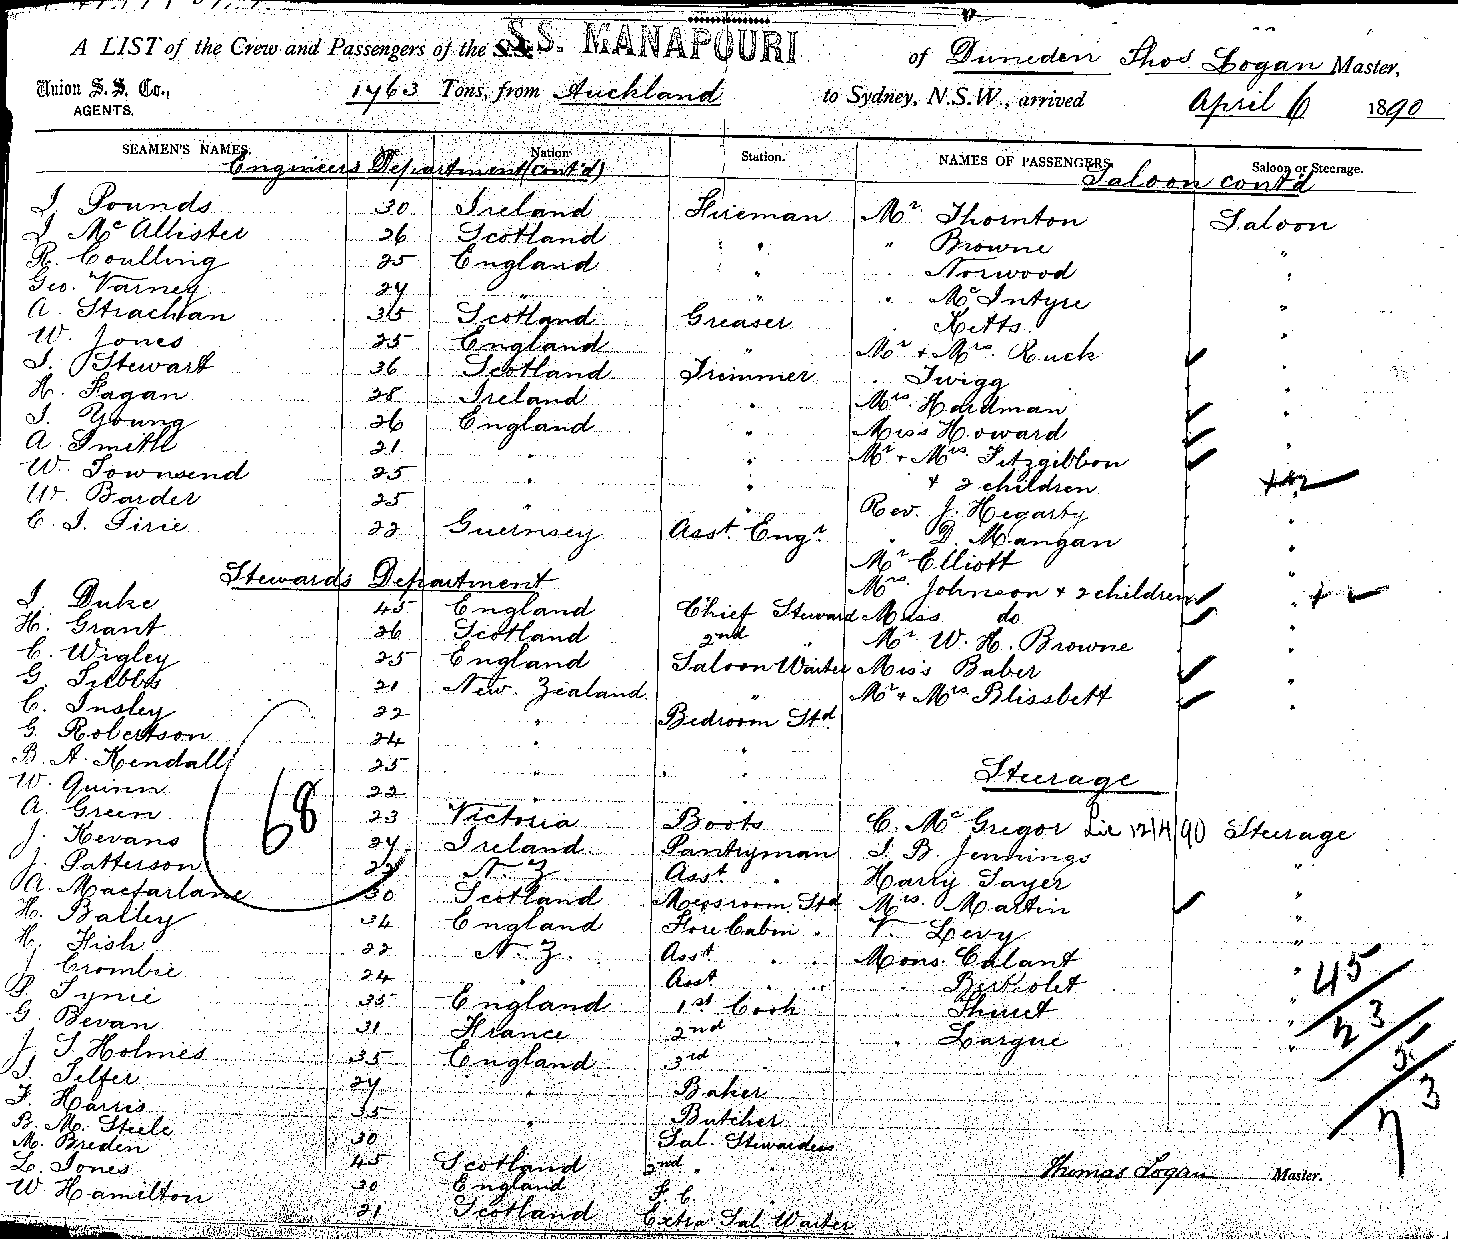 A LIST of the Crew and Passengers of the S.S. MANAPOURI of Dunedin Thos Logan Master,
Union S. S. Co., AGENTS. 1763 Tons, from Auckland to Sydney, N.S.W., arrived April 6 1890
SEAMEN'S NAMES. Nation Station. NAMES OF PASSENGERS. Saloon or Steerage.
Engineers Department (cont'd) Saloon cont'd
J. Pounds 30 Ireland Fireman Mr Thornton Saloon
J McAllister 26 Scotland " " Browne "
R. Coulling 25 England " " Norwood "
Geo. Varney 24 " " " McIntyre "
A. Strachan 35 Scotland Greaser " Ketts "
W. Jones 25 England " Mr + Mrs. Ruck "
J. Stewart 36 Scotland Trimmer " Twigg "
H. Fagan 28 Ireland " Mrs. Hardman "
J. Young 26 England " Miss Howard "
A. Smith 21 " " Mr + Mrs. Fitzgibbon "
W. Townsend 25 " " + 2 children +2
W. Barder 25 " " Rev. J. Hegarty "
C. J. Pirie 22 Guernsey Asst. Engr. " D. Mangan "
Mr Elliott "
Stewards Department Mrs. Johnson + 2 children " + 2
J. Duke 45 England Chief Steward Miss do "
H. Grant 26 Scotland 2nd " Mr. W. H. Browne "
C. Wigley 25 England Saloon Waiter Miss Baber "
G. Tibbs 21 New Zealand " Mr + Mrs. Blissbett "
C. Insley 22 " Bedroom Std
G. Robertson 24 " "
B. A. Kendall 25 " "
W. Quinn 22 " Steerage
A. Green 23 Victoria Boots C. McGregor 12/4/90 Steerage
J. Kevans 24 Ireland Pantryman J. B. Jennings "
J. Patterson N. Z. Asst " Harry Sayer "
A. Macfarlane 30 Scotland Messroom Std Mrs. Martin "
H. Balley 34 England Fore Cabin " V. Levy "
H. Fish 22 N. Z. Asst " " Mons. Calant "
J Crombie 24 " Asst " " " Bertholet "
P. Tynie 35 England 1st Cook " Thuret "
G. Bevan 31 France 2nd " Largue "
J. S Holmes 35 England 3rd
J. Telfer 24 " Baker
F. Harris 35 " Butcher
B. M. Steele 30 Sal. Stewardess
M. Breden 45 Scotland 2nd "
L. Jones 30 England F. C.
W Hamilton 21 Scotland Extra Sal Waiter
68
45
23
5
73
Thomas Logan Master.